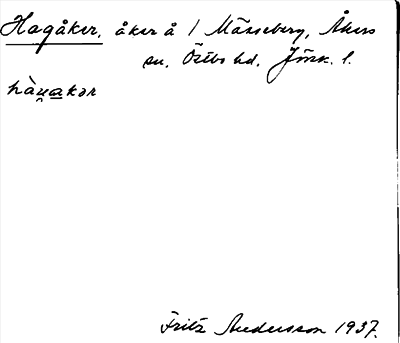 Hagåker, åker å 1 Mässeberg, Åkers
sn. Östbo hd. Jönk. l.
hàu̯akər
Fritz Andersson 1937.